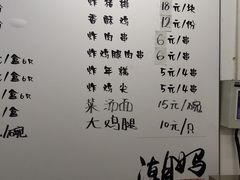 炸猪排 18元/块
香酥鸡 12元/份
炸肉串 6元/串
炸鸡胗肉串 6元/串
/盒 6只 炸年糕 5元/4串
/盒 6只 炸鸡尖 5元/4串
/盒 菜汤面 15元/碗
/碗 大鸡腿 10元/只
潮鸭